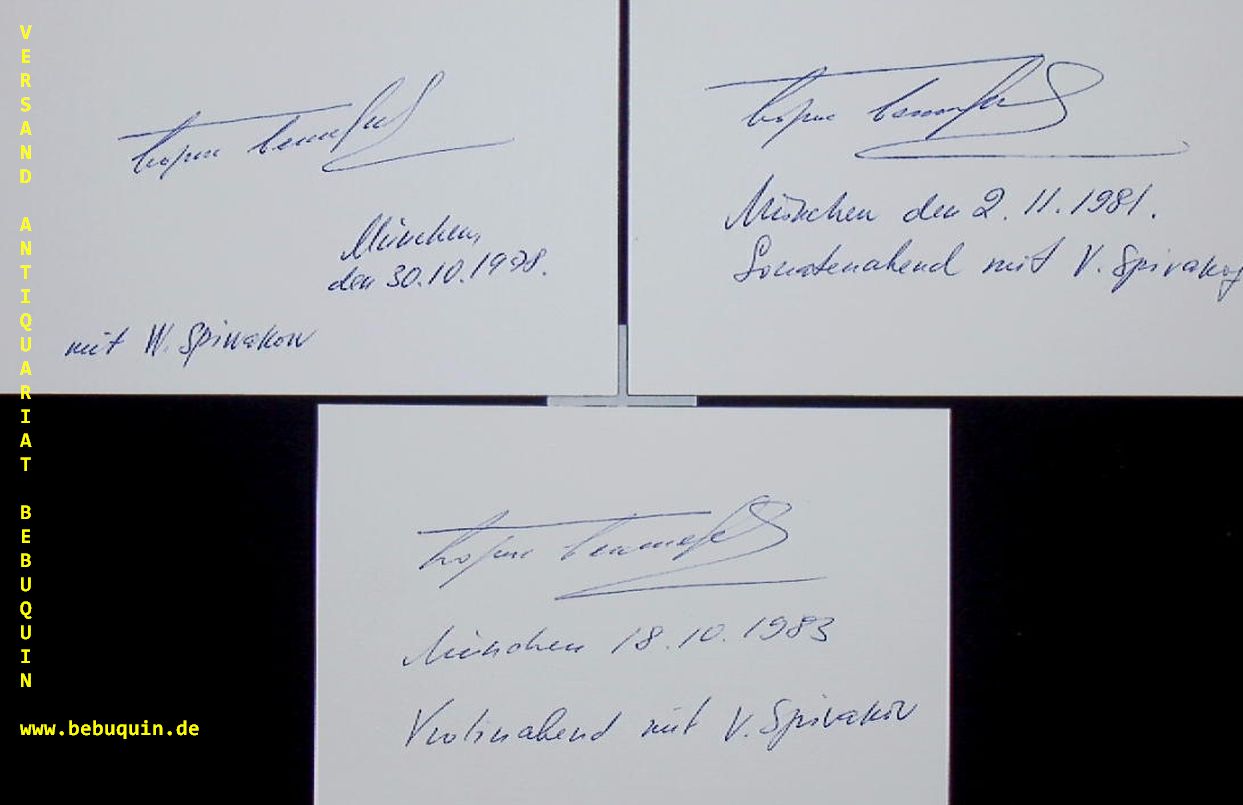 VERSAND ANTIQUARIAT BEBUQUIN
www.bebuquin.de
München,
den 30.10.1978.
mit W. Spiwakow
München den 2.11.1981.
Sonatenabend mit V. Spivakov
München 18.10.1983
Violinabend mit V. Spivakov